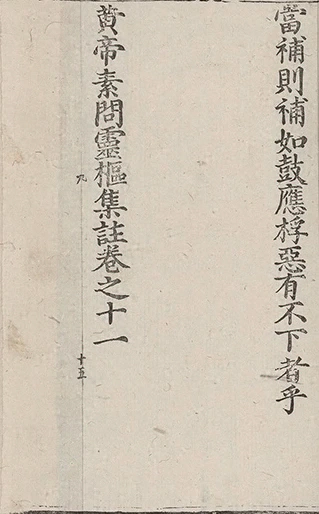 當補則補如鼓應桴惡有不下者乎
黄帝素問靈樞集註卷之十一
九
十五